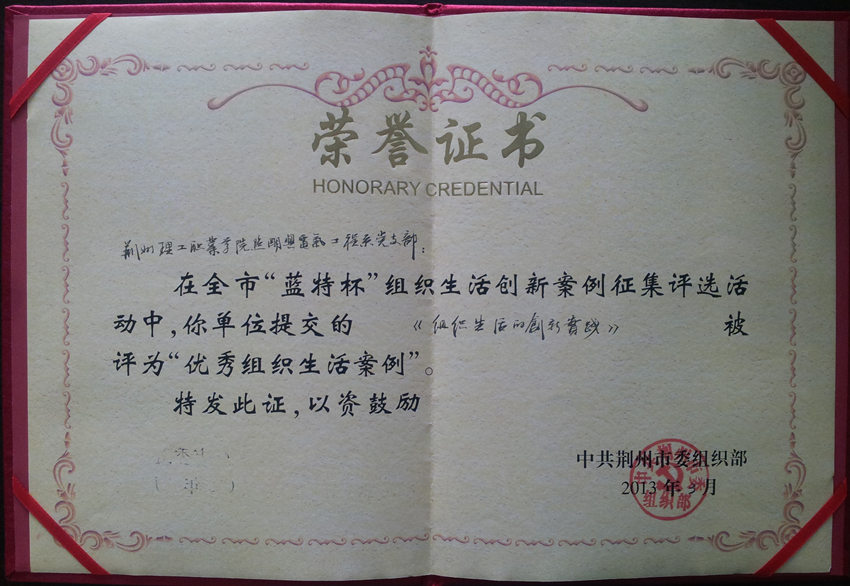 荣誉证书
HONORARY CREDENTIAL
荆州理工职业学院照明与电气工程系党支部：
在全市“蓝特杯”组织生活创新案例征集评选活
动中，你单位提交的 《组织生活的创新实践》 被
评为“优秀组织生活案例”。
特发此证，以资鼓励
中共荆州市委组织部
2013年3月
中共荆州市委
组织部